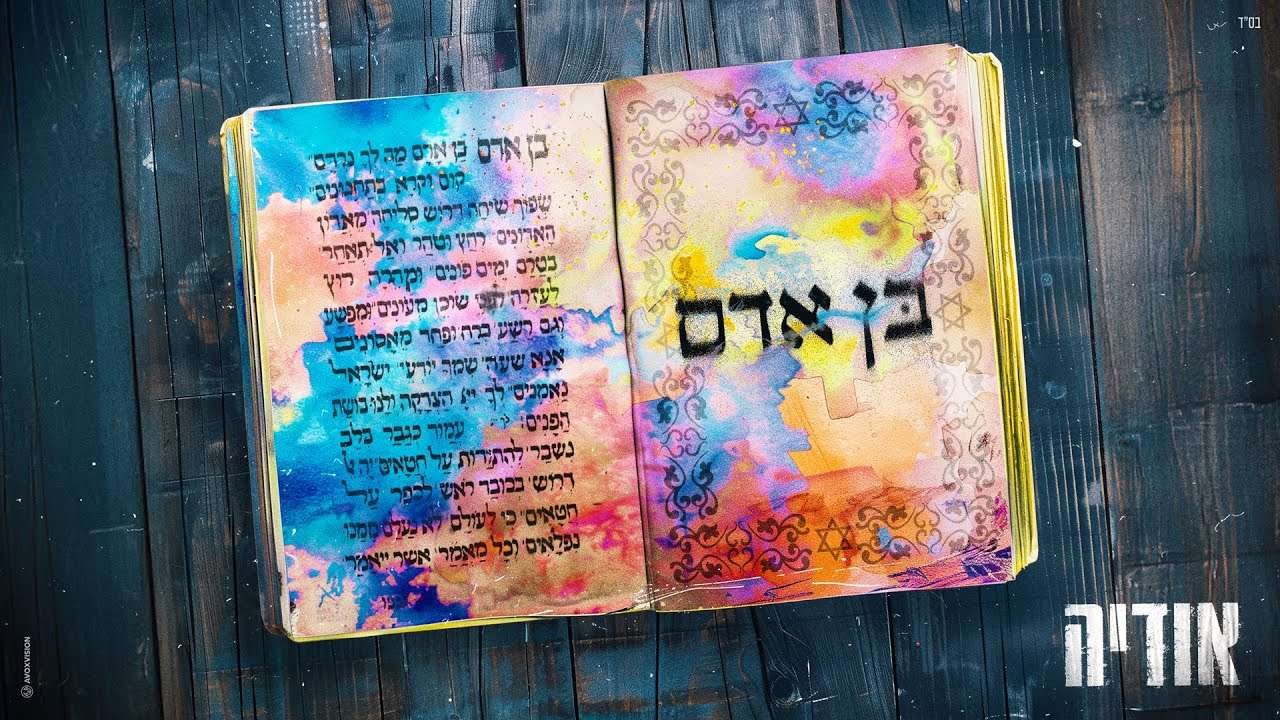 בס"ד
בן אדם
בן אדם בן אדם מה לך נרדם"
קום וקרא בתחנונים"
שפוך שיחה דרוש סליחה מאדון
האדונים" רחץ וטהר ואל תאחר"
בטרם ימים פונים" ומהרה רוץ
לעזרה לפני שוכן מעונים" ומפשע
וגם רשע ברח ופחד מאסונים
אנא שעה" שמך יודעי" ישראל"
נאמנים" לך ייי הצדקה ולנו בושת
הפנים: עמוד כגבר בלב
נשבר" להתודות על חטאים"
דרוש" בכובד ראש" לכפר על
חטאים" כי לעולם לא נעלם ממנו
נפלאים" וכל מאמר" אשר ייאמר"
אודיה
AVOXVISION